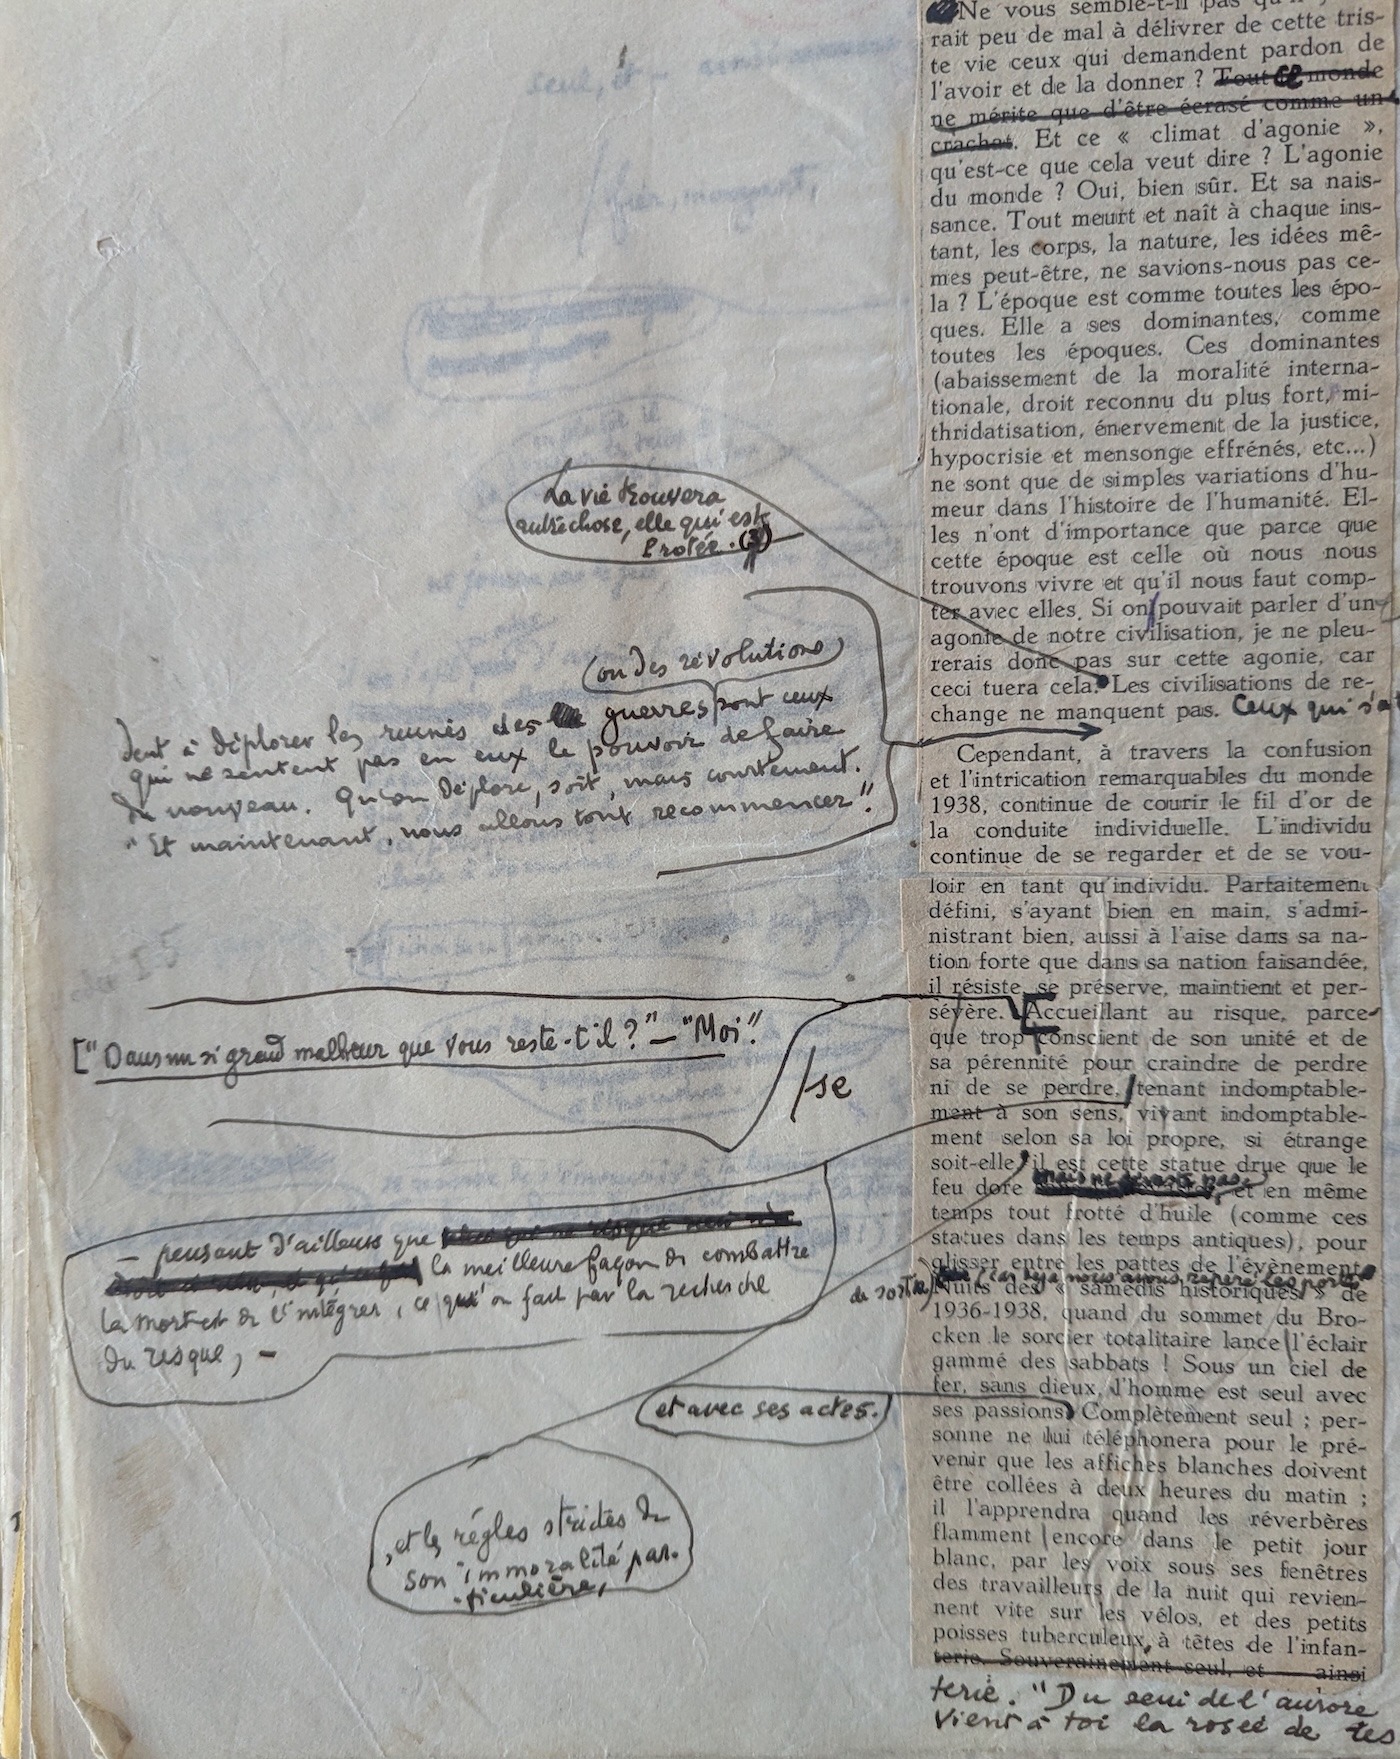 Ne vous semble-t-il pas
rait peu de mal à délivrer de cette tris-
te vie ceux qui demandent pardon de
l'avoir et de la donner ? Tout ce monde
ne mérite que d'être écrasé comme un
crachat. Et ce « climat d'agonie »,
qu'est-ce que cela veut dire ? L'agonie
du monde ? Oui, bien sûr. Et sa nais-
sance. Tout meurt et naît à chaque ins-
tant, les corps, la nature, les idées mê-
mes peut-être, ne savions-nous pas ce-
la ? L'époque est comme toutes les épo-
ques. Elle a ses dominantes, comme
toutes les époques. Ces dominantes
(abaissement de la moralité interna-
tionale, droit reconnu du plus fort, mi-
thridatisation, énervement de la justice,
hypocrisie et mensonge effrénés, etc...)
ne sont que de simples variations d'hu-
meur dans l'histoire de l'humanité. El-
les n'ont d'importance que parce que
cette époque est celle où nous nous
trouvons vivre et qu'il nous faut comp-
ter avec elles. Si on pouvait parler d'un
agonie de notre civilisation, je ne pleu-
rerais donc pas sur cette agonie, car
ceci tuera cela. Les civilisations de re-
change ne manquent pas. Ceux qui s'at
La vie trouvera
autre chose, elle qui est
Protée. (3)
(ou des révolutions)
dent à déplorer les ruines des guerres sont ceux
qui ne sentent pas en eux le pouvoir de faire
du nouveau. Qu'on déplore, soit, mais courtement.
"Et maintenant, nous allons tout recommencer".
Cependant, à travers la confusion
et l'intrication remarquables du monde
1938, continue de courir le fil d'or de
la conduite individuelle. L'individu
continue de se regarder et de se vou-
loir en tant qu'individu. Parfaitement
défini, s'ayant bien en main, s'admi-
nistrant bien, aussi à l'aise dans sa na-
tion forte que dans sa nation faisandée,
il résiste, se préserve, maintient et per-
sévère. Accueillant au risque, parce
que trop conscient de son unité et de
sa pérennité pour craindre de perdre
ni de se perdre, tenant indomptable-
ment à son sens, vivant indomptable-
ment selon sa loi propre, si étrange
soit-elle, il est cette statue drue que le
feu dore mais ne dévaste pas, et en même
temps tout frotté d'huile (comme ces
statues dans les temps antiques), pour
glisser entre les pattes de l'évènement
(car déjà nous avons repéré les portes
de sortie)
Nuits des « samedis historiques » de
1936-1938, quand du sommet du Bro-
cken le sorcier totalitaire lance l'éclair
gammé des sabbats ! Sous un ciel de
fer, sans dieux, l'homme est seul avec
ses passions Complètement seul ; per-
sonne ne lui téléphonera pour le pré-
venir que les affiches blanches doivent
être collées à deux heures du matin ;
il l'apprendra quand les réverbères
flamment encore dans le petit jour
blanc, par les voix sous ses fenêtres
des travailleurs de la nuit qui revien-
nent vite sur les vélos, et des petits
poisses tuberculeux, à têtes de l'infan-
terie. Souverainement seul, et ainsi
terie. "Du sein de l'aurore
vient à toi la rosée de tes
["Dans un si grand malheur que vous reste-t-il ?" — "Moi".
/se
— pensant d'ailleurs que
la meilleure façon de combattre
la mort est de l'intégrer, ce qu'on fait par la recherche
du risque, —
et avec ses actes.)
, et les règles strictes de
son immoralité par-
ticulière,